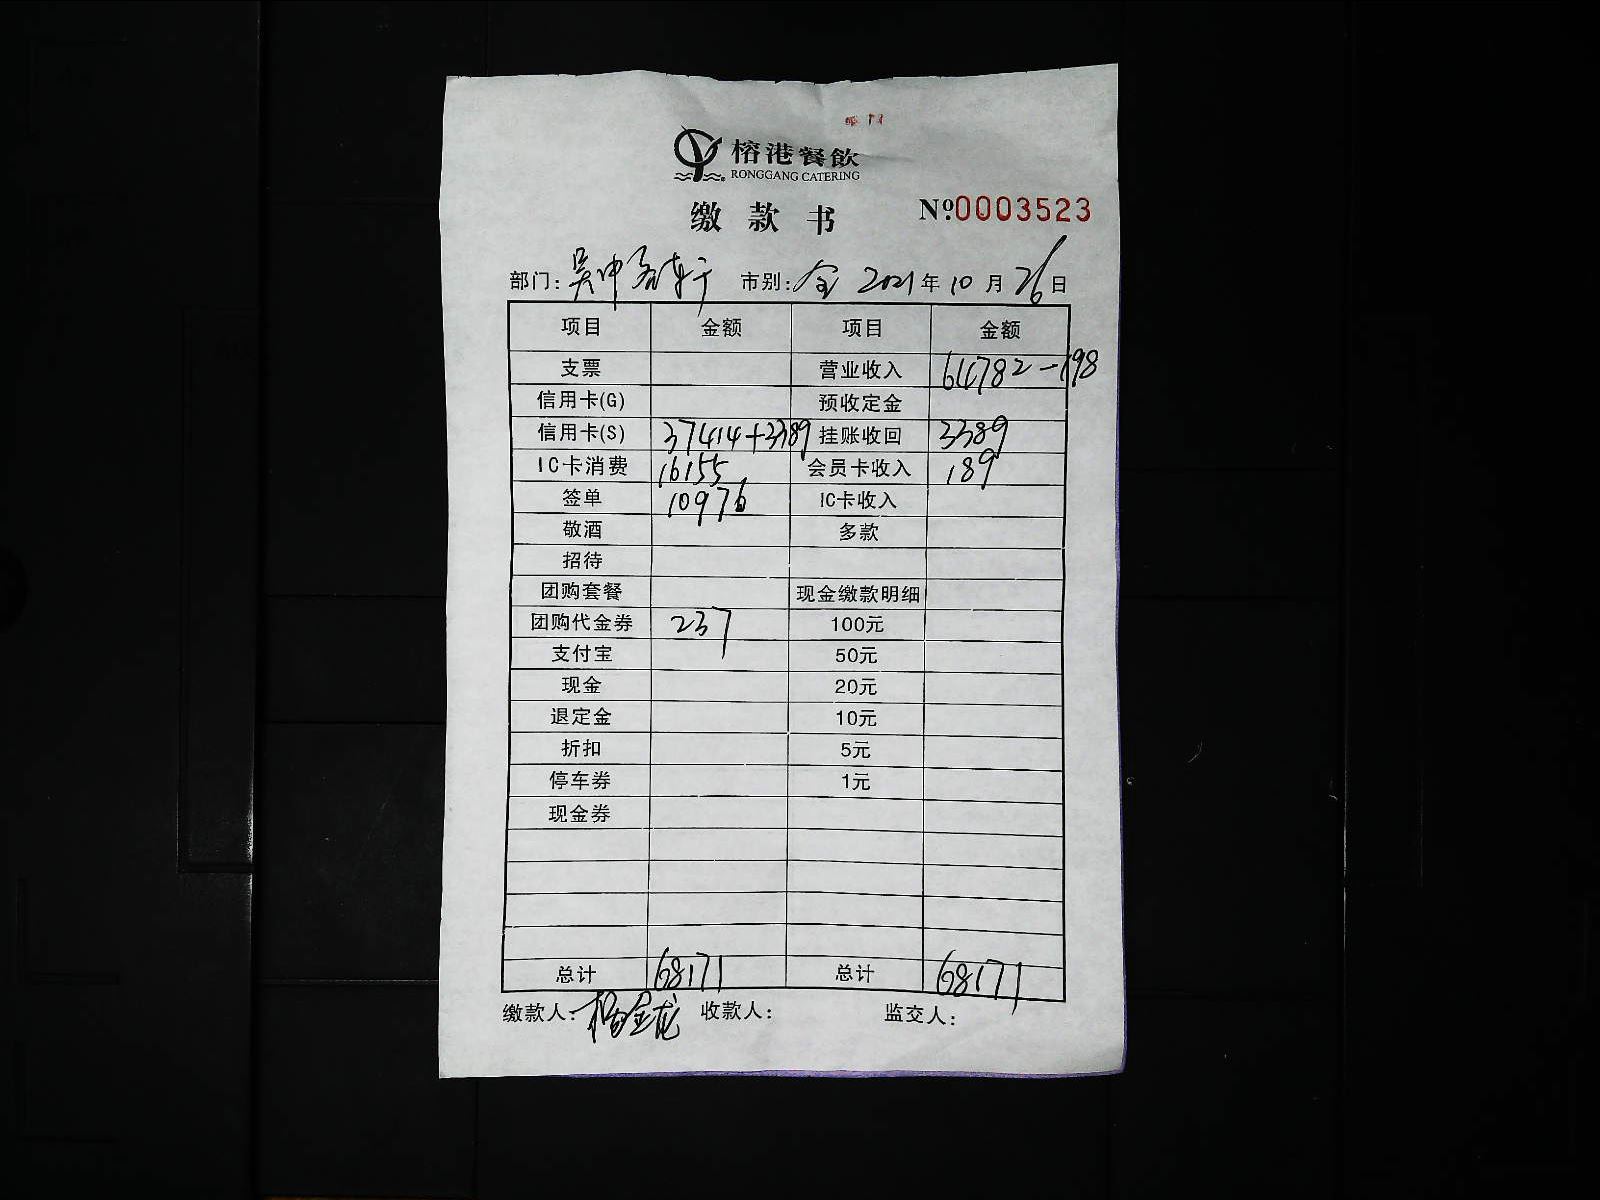 榕港餐飲
RONGGANG CATERING
缴款书 №0003523
部门: 吴中 市别: 全 2021年10月26日
项目 金额 项目 金额
支票 营业收入 64782-198
信用卡(G) 预收定金
信用卡(S) 37414+3389 挂账收回 3389
IC卡消费 16155 会员卡收入 189
签单 10976 IC卡收入
敬酒 多款
招待
团购套餐 现金缴款明细
团购代金券 237 100元
支付宝 50元
现金 20元
退定金 10元
折扣 5元
停车券 1元
现金券
总计 68171 总计 68171
缴款人: 杨金龙 收款人: 监交人: